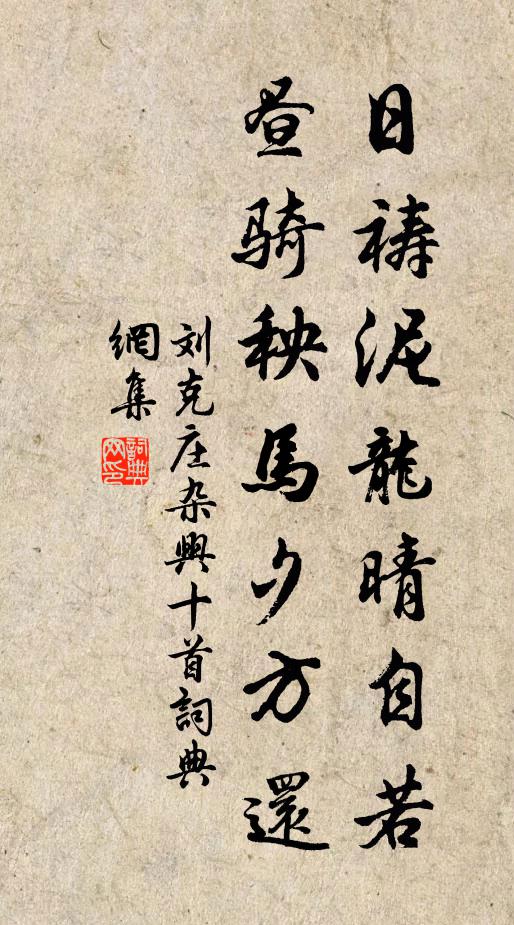 日祷泥龍晴自若
昼骑秧馬夕方還
刘克庄杂興十首詞典
網集
詞典
网印